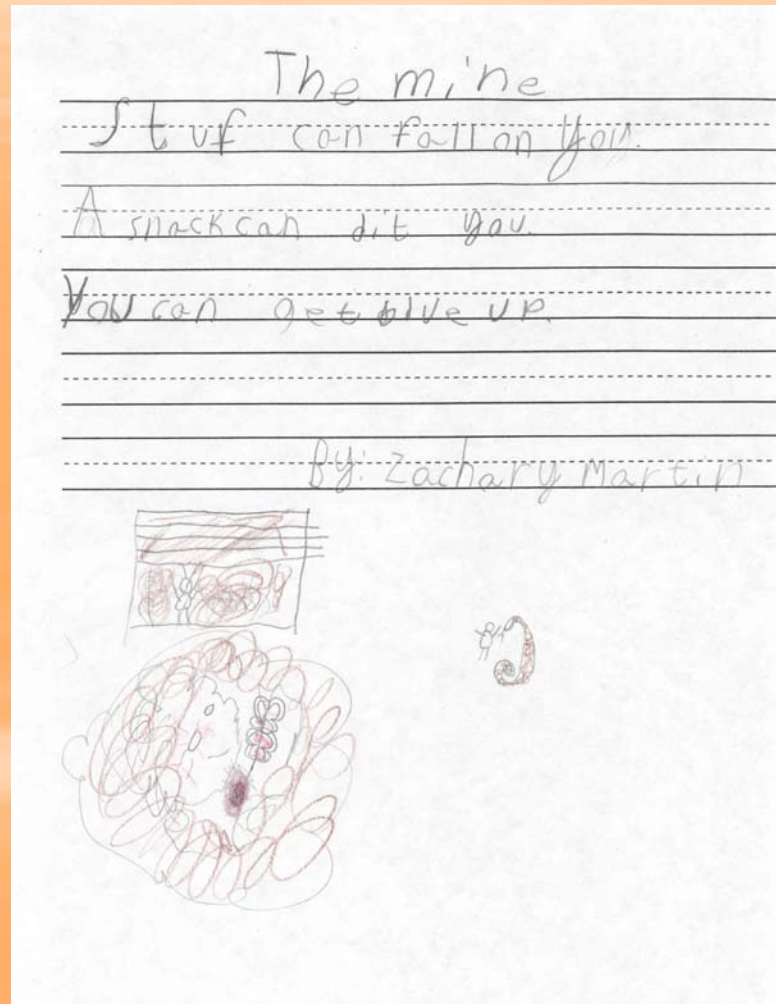 The mine
Stuf can fall on you.
A snack can dit you.
You can get blve up.
By: Zachary Martin